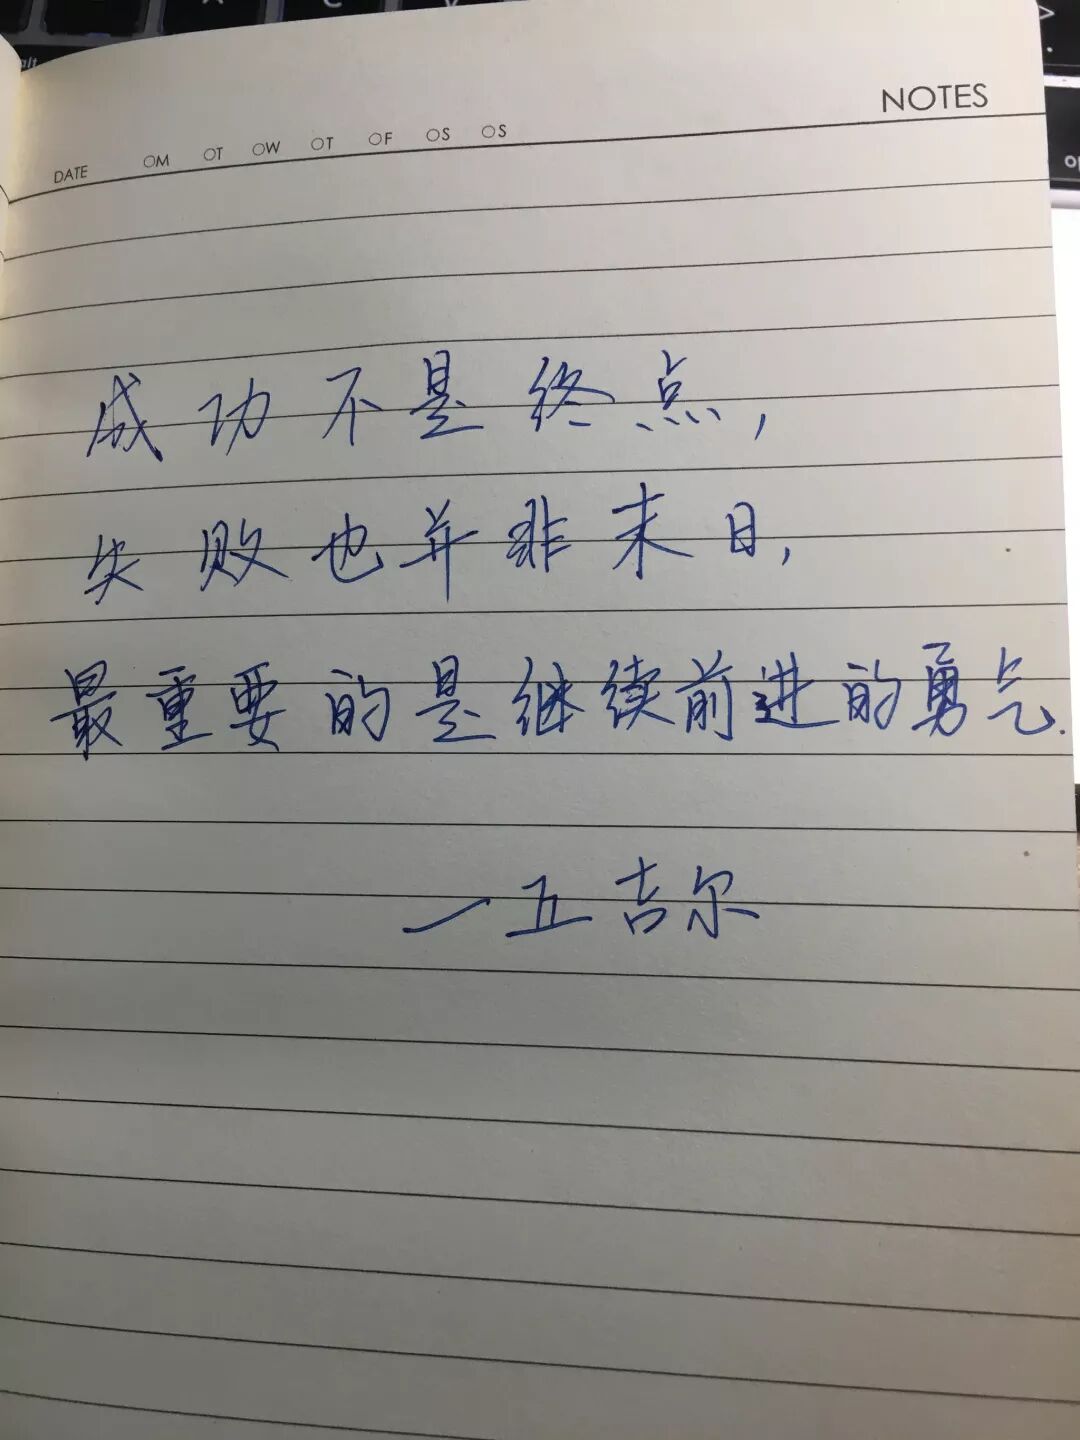 NOTES
DATE ○M ○T ○W ○T ○F ○S ○S
成功不是终点,
失败也并非末日,
最重要的是继续前进的勇气.
一五吉尔